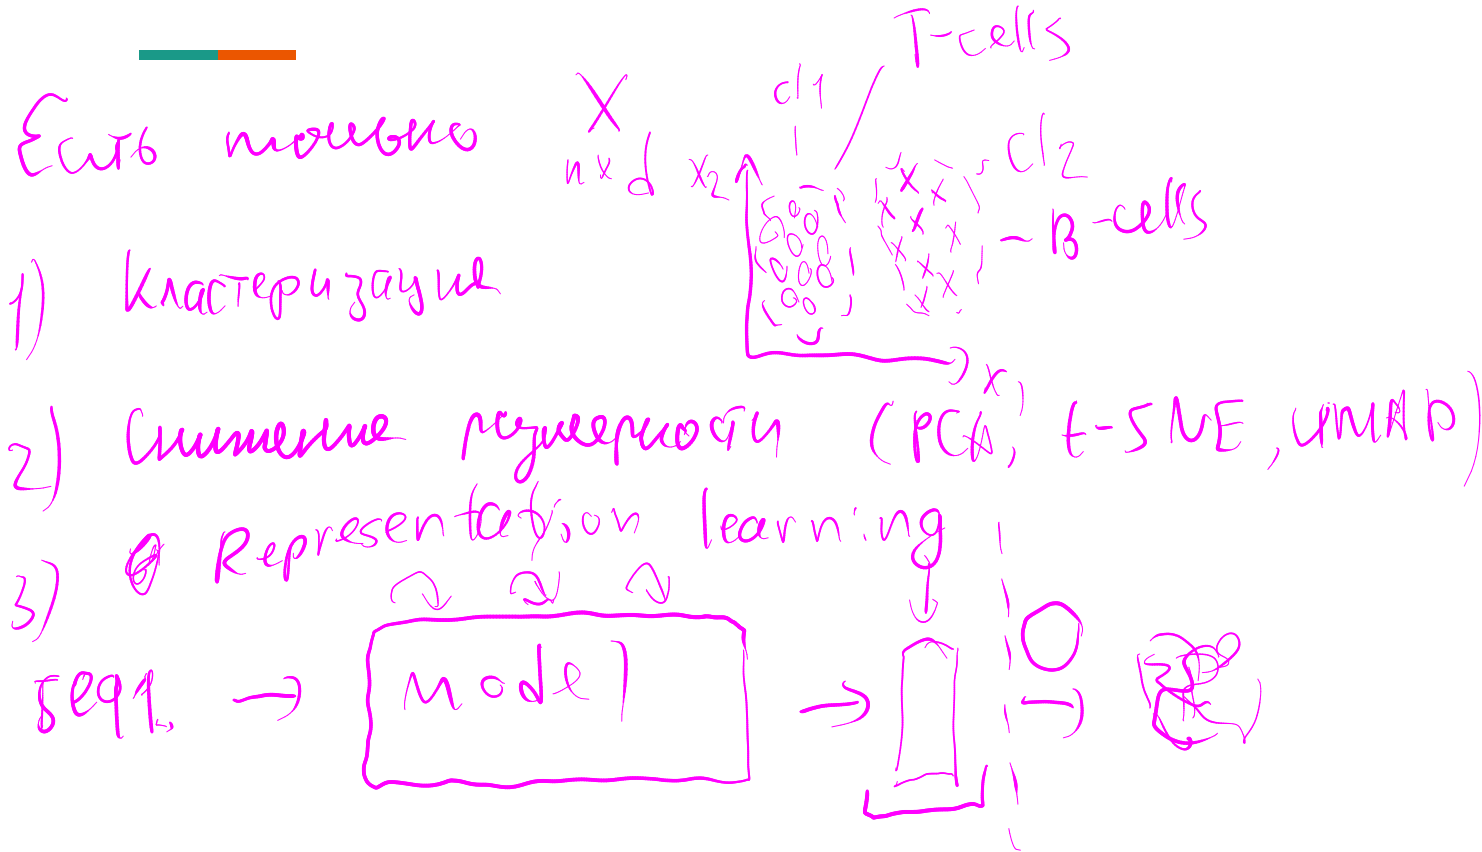 Есть только X
n × d
x2
cl1
T-cells
cl2
B-cells
x1
1) Кластеризация
2) Снижение размерности (PCA, t-SNE, UMAP)
3) Representation learning
seq1. → model → →